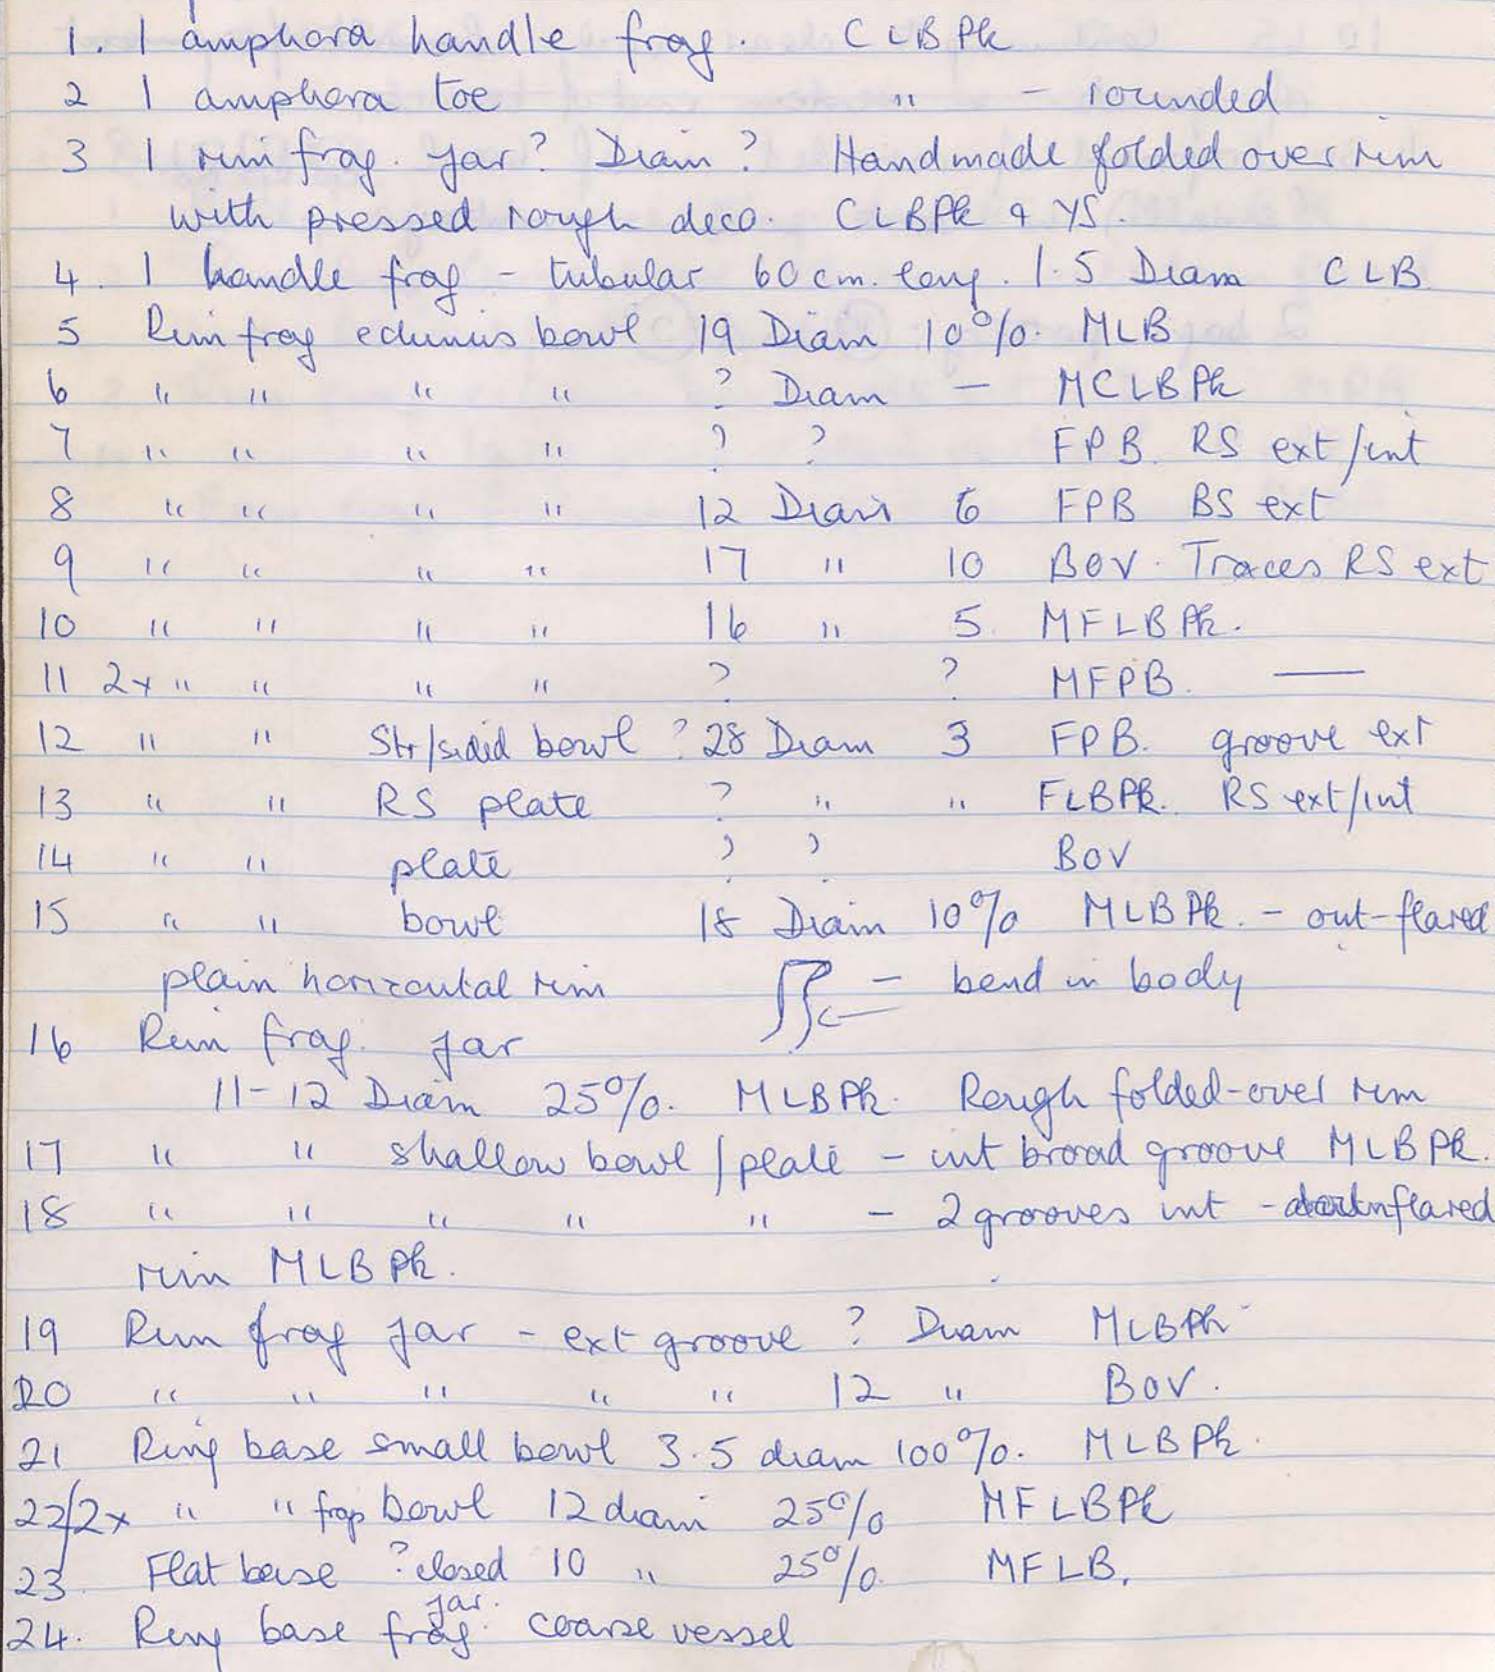 1. 1 amphora handle frag. CLBPk
2 1 amphora toe " - rounded
3 1 rim frag. jar? Diam? Handmade folded over rim
with pressed rough deco. CLBPk & YS.
4. 1 handle frag - tubular 60 cm. long. 1.5 Diam CLB
5 Rim frag echinus bowl 19 Diam 10%. MLB
6 " " " " ? Diam — MCLBPk
7 " " " " ? ? FPB. RS ext/int
8 " " " " 12 Diam 6 FPB BS ext
9 " " " " 17 " 10 BOV. Traces RS ext
10 " " " " 16 " 5. MFLBPk.
11 2x " " " " ? ? MFPB. —
12 " " Str/sided bowl ? 28 Diam 3 FPB. groove ext
13 " " RS plate ? " " FLBPk. RS ext/int
14 " " plate ? ? BOV
15 " " bowl 18 Diam 10% MLBPk. - out-flared
plain horizontal rim — bend in body
16 Rim frag. jar
11-12 Diam 25%. MLBPk. Rough folded-over rim
17 " " shallow bowl/plate - int broad groove MLBPk.
18 " " " " " - 2 grooves int - inflared
rim MLBPk.
19 Rim frag jar - ext groove ? Diam MLBPk
20 " " " " " 12 " BOV.
21 Ring base small bowl 3.5 diam 100%. MLBPk.
22/2x " " frag bowl 12 diam 25% MFLBPk
23. Flat base ?closed jar. 10 " 25%. MFLB.
24. Ring base frag. coarse vessel